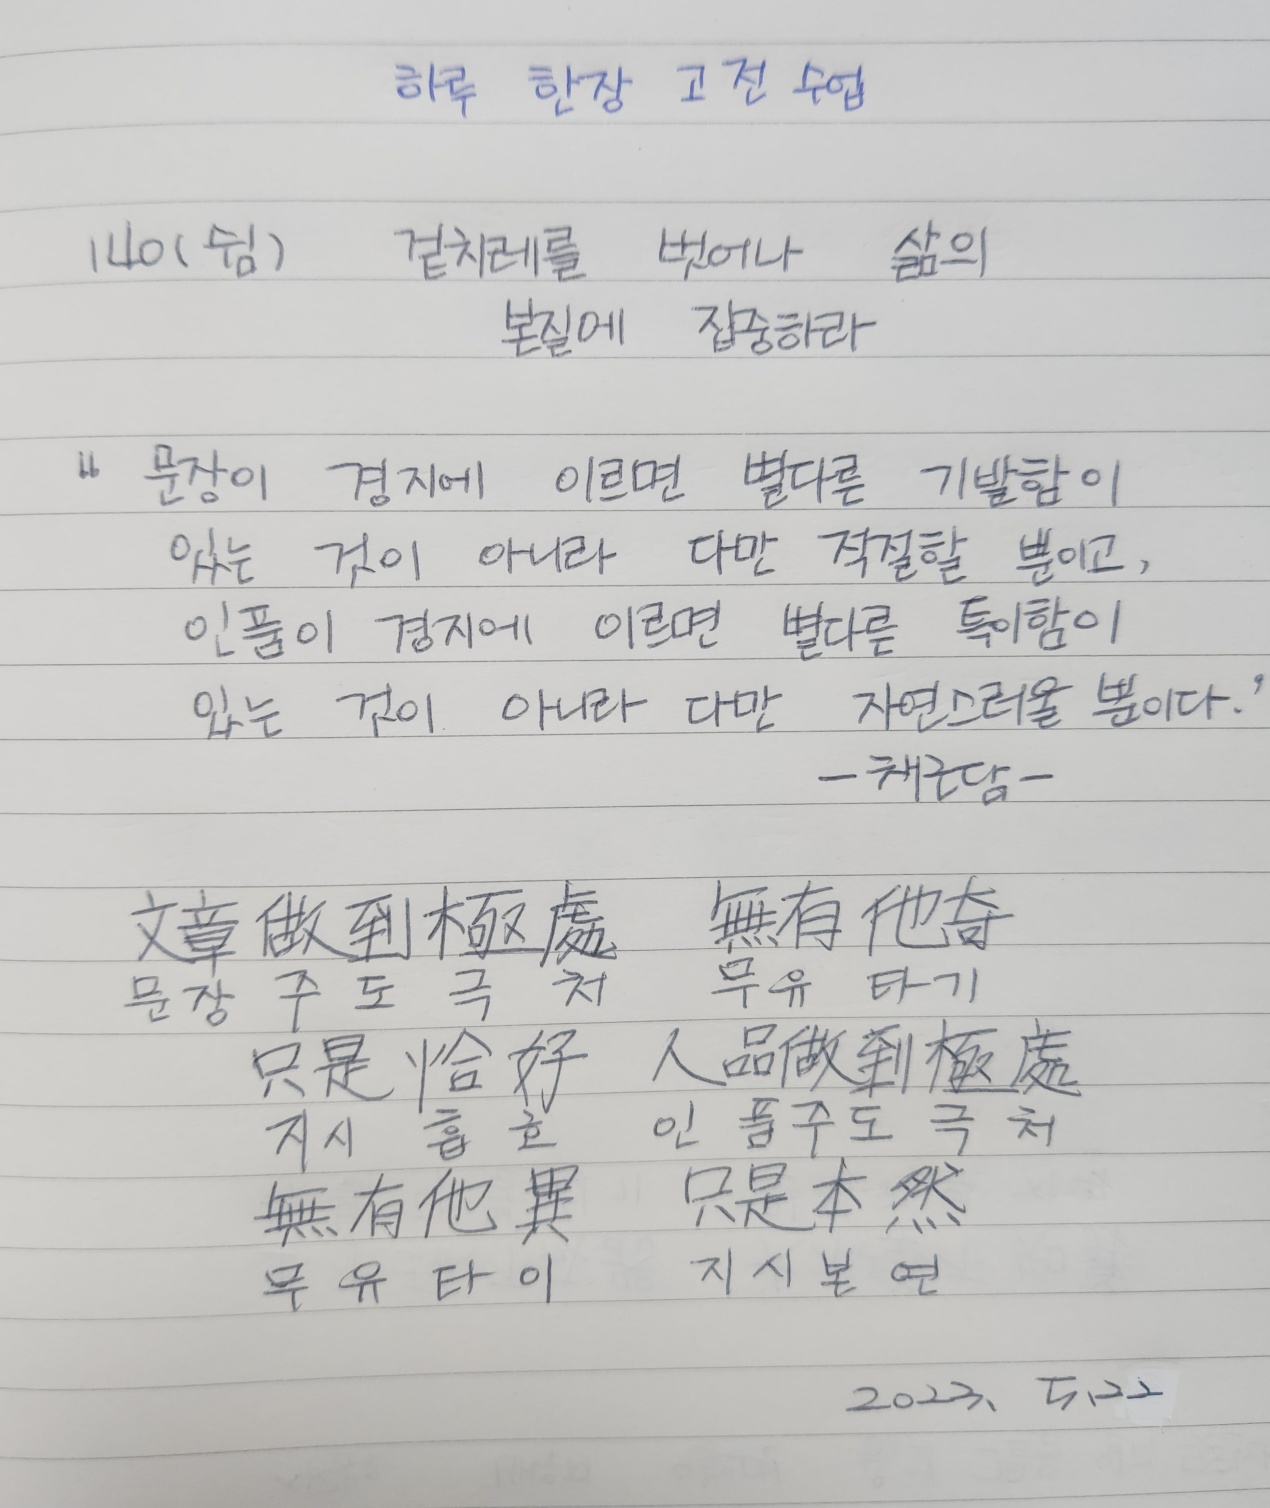 하루 한장 고전 수업
140(쉼) 겉치레를 벗어나 삶의
본질에 집중하라
“ 문장이 경지에 이르면 별다른 기발함이
있는 것이 아니라 다만 적절할 뿐이고,
인품이 경지에 이르면 별다른 특이함이
있는 것이 아니라 다만 자연스러울 뿐이다.’
- 채근담 -
文章做到極處 無有他奇
문장 주도극처 무유 타기
只是恰好 人品做到極處
지시 흡호 인품주도극처
無有他異 只是本然
무유타이 지시본연
2023. 5.22